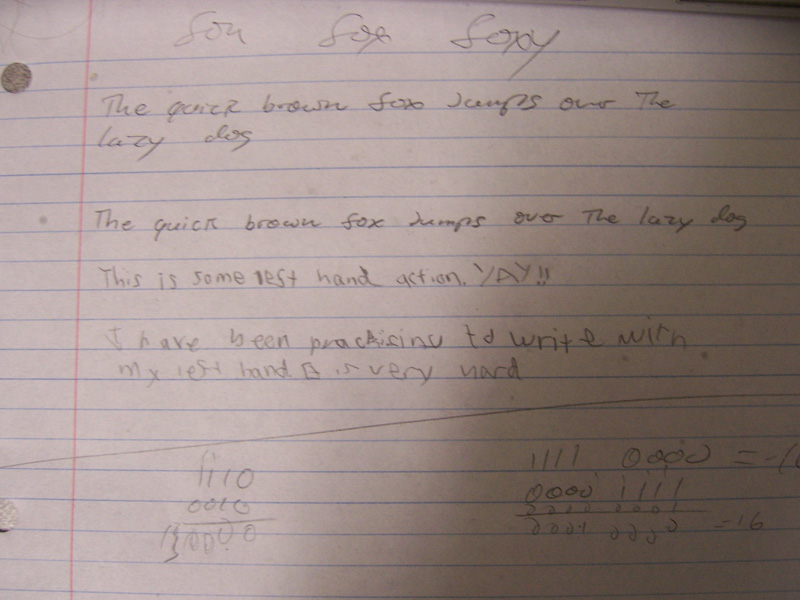 fox fox foxy
The quick brown fox Jumps over The
lazy dog
The quick brown fox Jumps over The lazy dog
This is some left hand action. YAY!!
I have been practising to write with
my left hand. It is very hard
1110
0010
10000
1111 0000 = -16
0000 1111
0000 0001
0001 0000 = 16